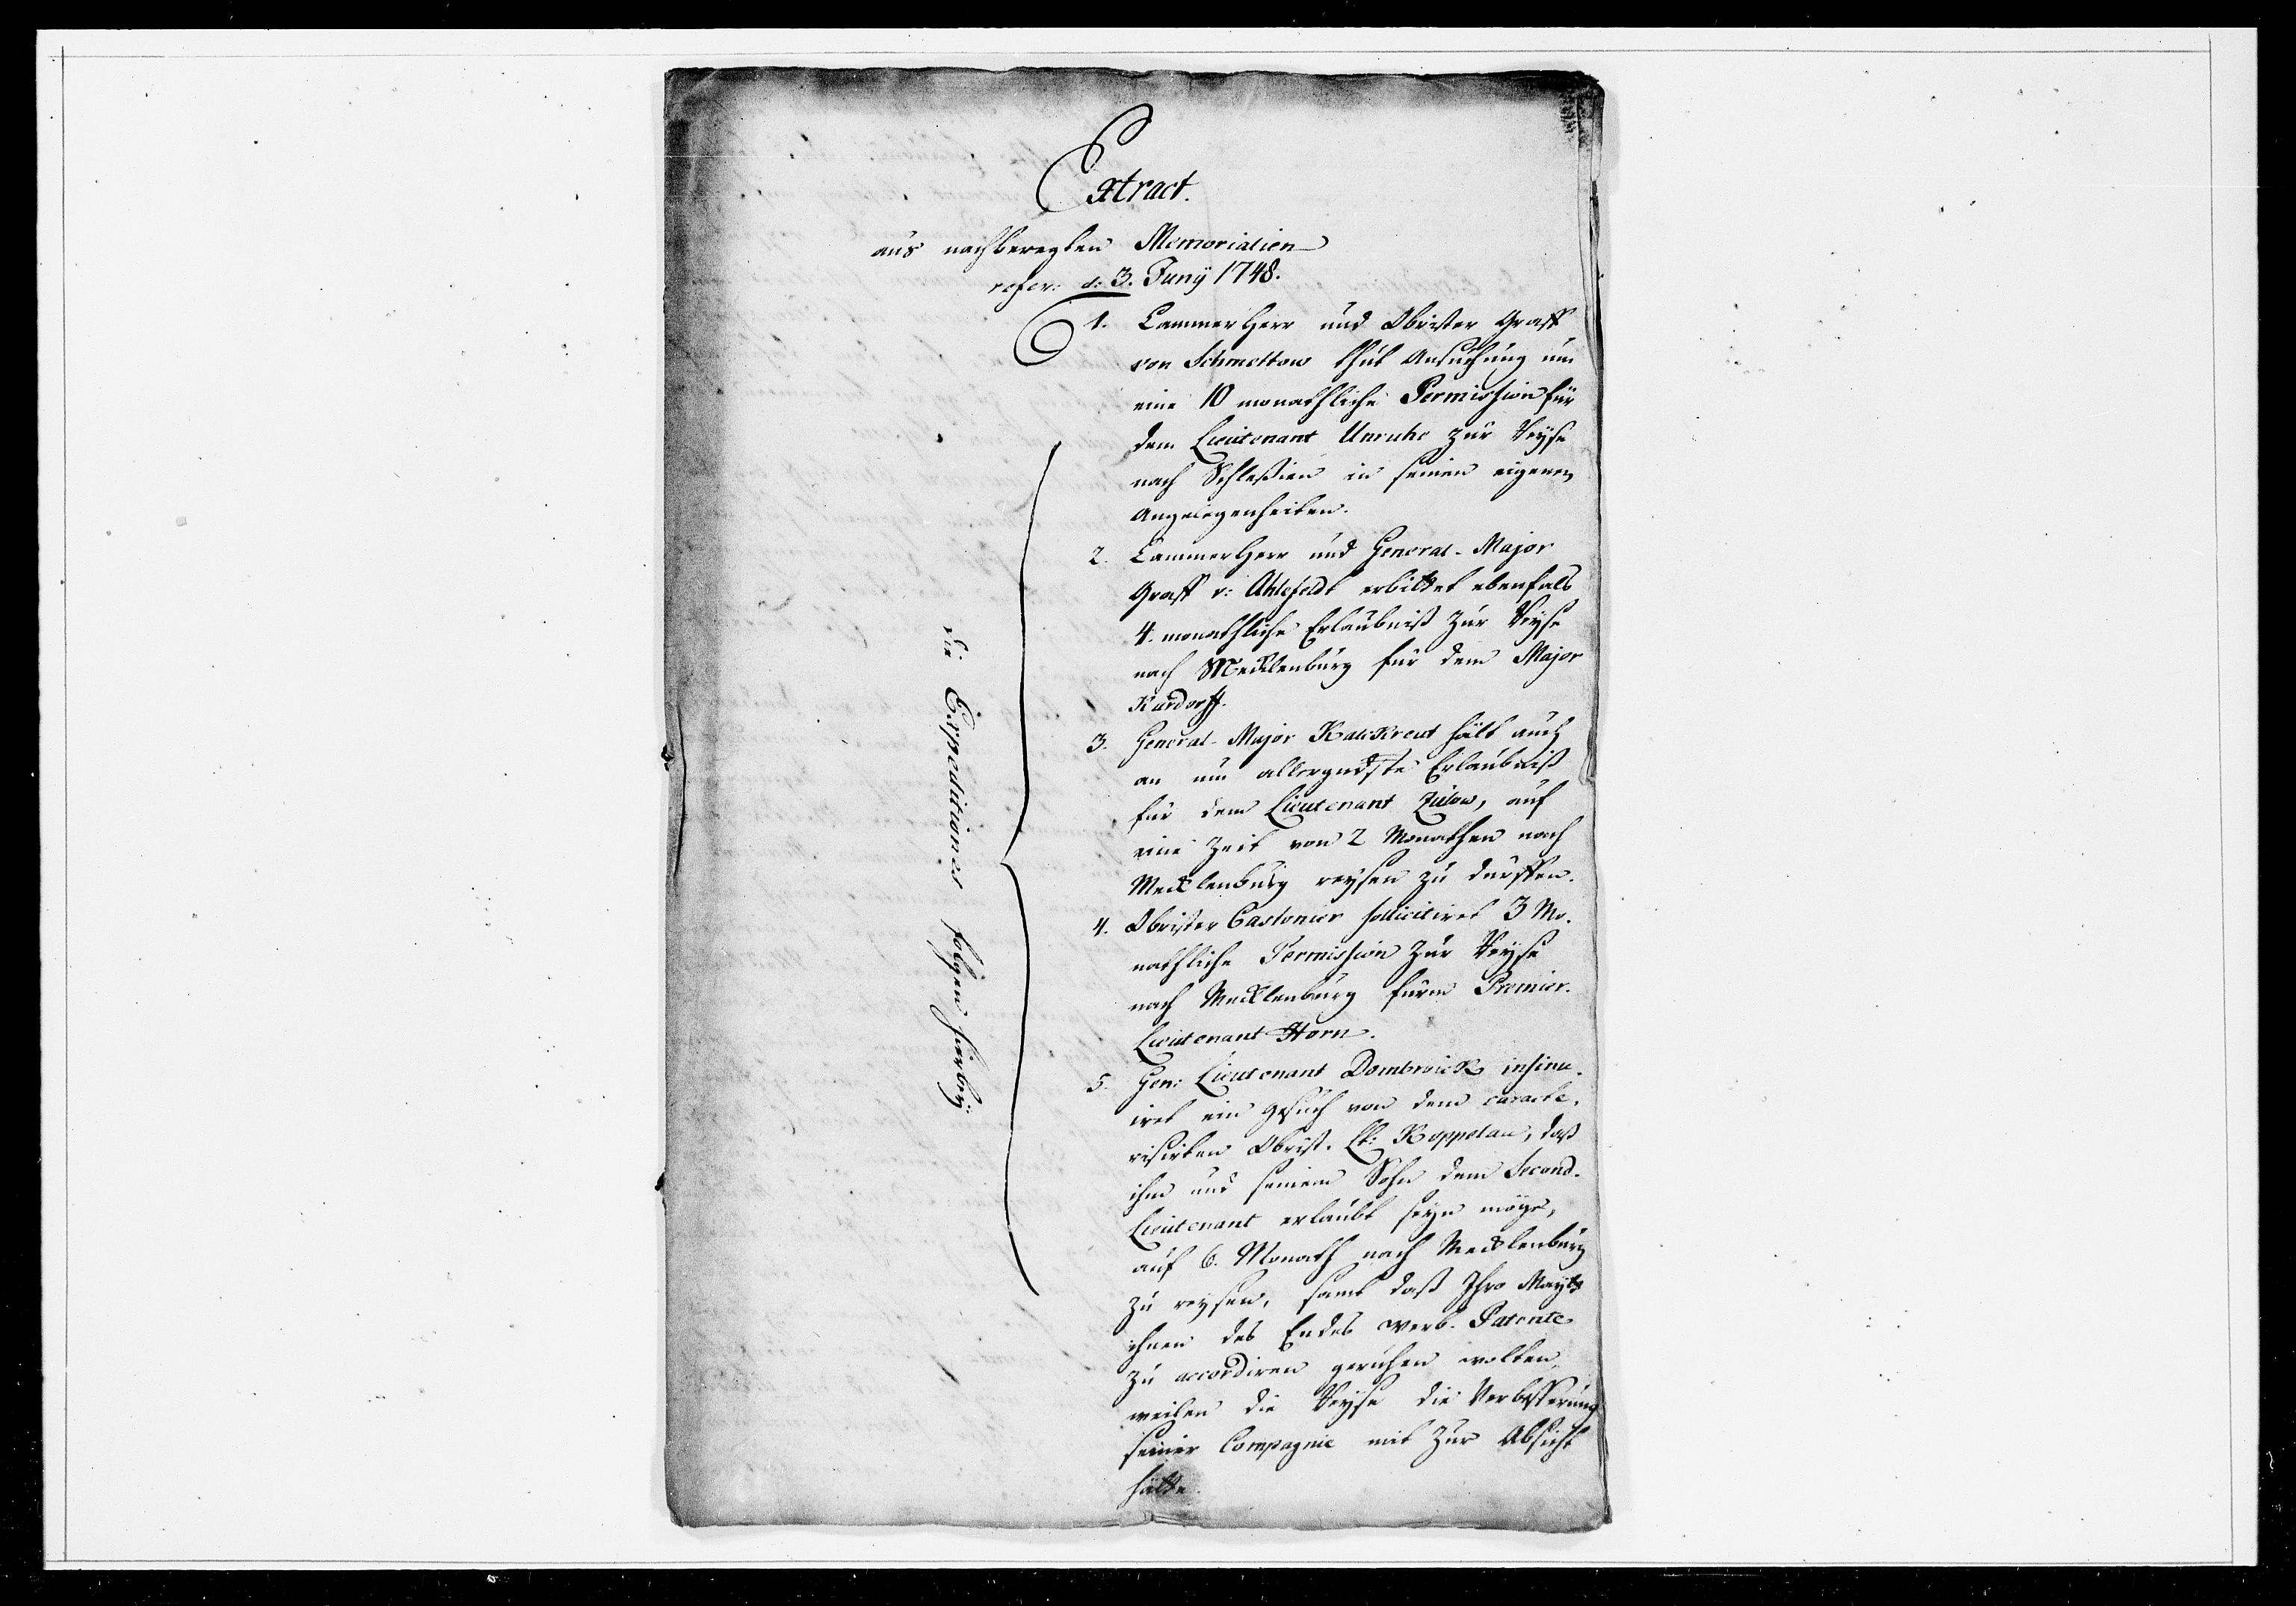 Extract.
aus nachberegten Memorialien
refer: d: 3. Juny 1748.
1. Cammerherr und Obrister Graff
von Schmettow thut Ansuchung um
eine 10 monathliche Permission für
dem Lieutenant Unruhe zur Reyse
nach Schlesien in seinen eigenen
Angelegenheiten.
2. Cammerherr und General-Major
Graff v: Ahlefeldt erbittet ebenfals
4. monathliche Erlaubniß zur Reyse
nach Mecklenburg für dem Major
Kardorff.
3. General-Major Kalckreut hält auch
an um allergndste Erlaubniß
für dem Lieutenant Zülow, auf
eine Zeit von 2 Monathen nach
Mecklenburg reysen zu dürffen.
4. Obrister Castonier sollicitiret 3 Mo-
nathliche Permission zur Reyse
nach Mecklenburg fürm Premier-
Lieutenant Horn.
5. Gen: Lieutenant Dombroick insinu-
iret ein Gesuch von dem caracte-
risirten Obrist. Lt: Koppelau, daß
ihm und seinem Sohn dem Second-
Lieutenant erlaubt seyn möge,
auf 6. Monath nach Mecklenburg
zu reysen, samt daß Ihro Maytt
ihnen des Endes Werb-Patente
zu accordiren geruhen wolten,
weilen die Reyse die Verbesserung
seiner Compagnie mit zur Absicht
hätte.
die Expeditiones folgen hierbey